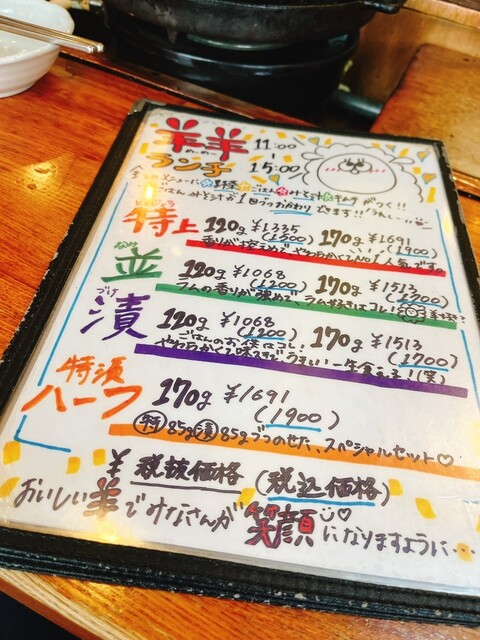 羊羊 11:00
めーめー
ランチ 15:00
全メニューに野菜・ごはん・みそ汁・キムチがつく!!
ごはん みそ汁が1回づつおかわりできます!!うれしー
とくじょう
特上 120g ¥1335 170g ¥1691
(1500) (1900)
香りが控えめでやわらかくてNo1人気ですの
なみ
並 120g ¥1068 170g ¥1513
(1200) (1700)
ラムの香りが強めで、ラム好きはコレ!
づけ
漬 120g ¥1068 170g ¥1513
(1200) (1700)
ごはんのお供はコレ!
やわらかくて味つきでうまい!一生食える!(笑)
特漬
ハーフ 170g ¥1691
(1900)
特85g漬85gづつのせた、スペシャルセット♡
¥税抜価格 (税込価格)
おいしい羊でみなさんが笑顔になりますように…